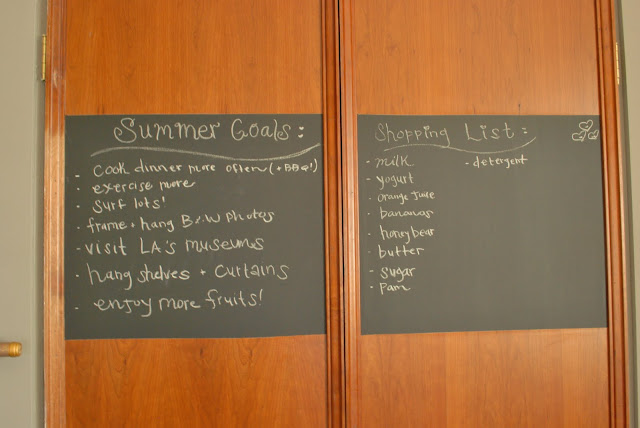 Summer Goals:
- cook dinner more often (+BBQ!)
- exercise more
- surf lots!
- frame + hang B&W photos
- visit LA's museums
- hang shelves + curtains
- enjoy more fruits!
Shopping List:
- milk
- yogurt
- orange juice
- bananas
- honey bear
- butter
- sugar
- pam
- detergent